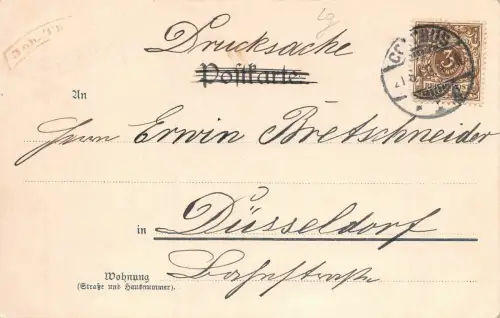 Drucksache
Postkarte
COTTBUS
3
An
Herrn Erwin Bretschneider
in Düsseldorf
Wohnung
(Straße und Hausnummer).
Bahnstraße